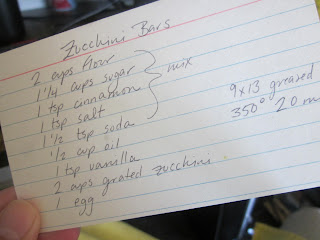 Zucchini Bars
2 cups flour
1 1/4 cups sugar
1 tsp cinnamon
1 tsp salt
1 1/2 tsp soda
mix
1/2 cup oil
1 tsp vanilla
2 cups grated zucchini
1 egg
9x13 greased
350° 20 m